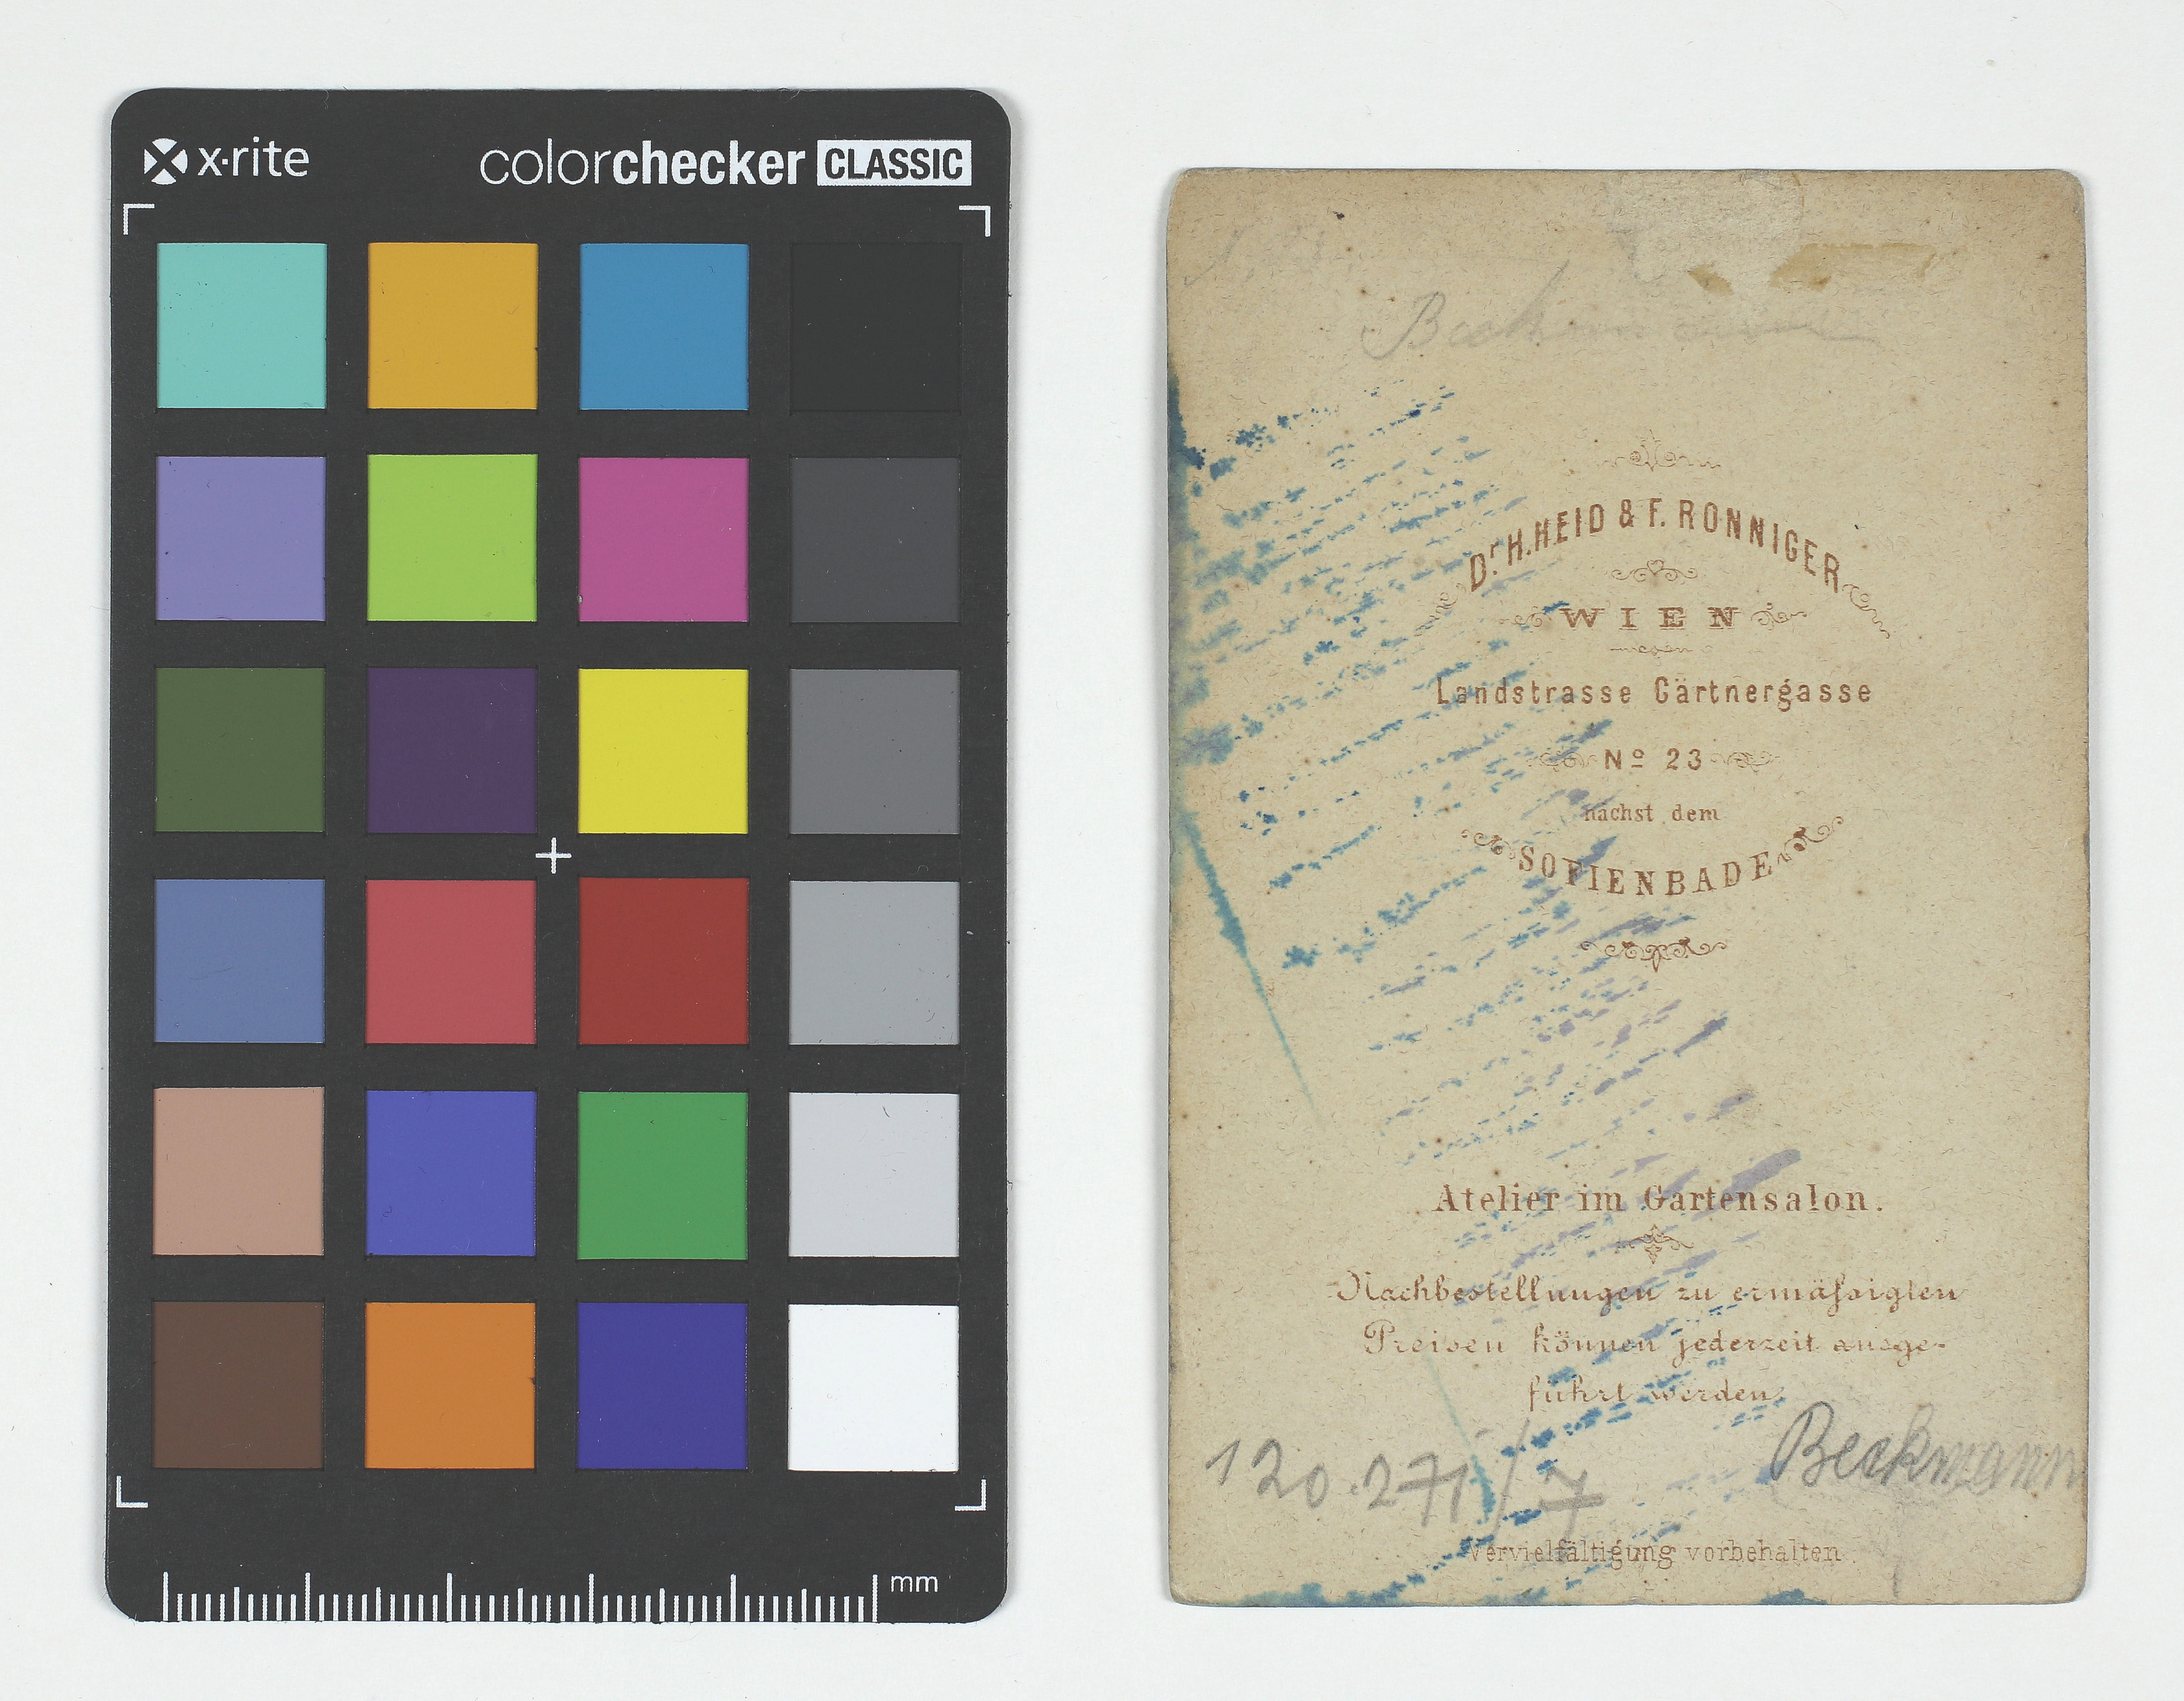 x·rite
colorchecker CLASSIC
mm
Dr. H. HEID & F. RONNIGER
WIEN
Landstrasse Gärtnergasse
Nº 23
nächst dem
SOFIENBADE
Atelier im Gartensalon.
Nachbestellungen zu ermäſsigten
Preisen können jederzeit ausge-
führt werden.
Beckmann
120.271/7
Vervielfältigung vorbehalten.